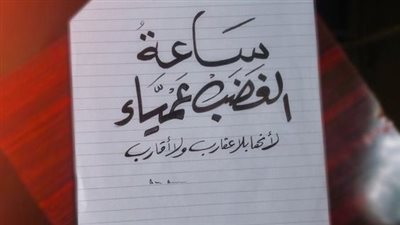 سَاعَةُ
الغَضَبْ عَمْيَّاء
لأنها بلا عقارب ولا أقارب